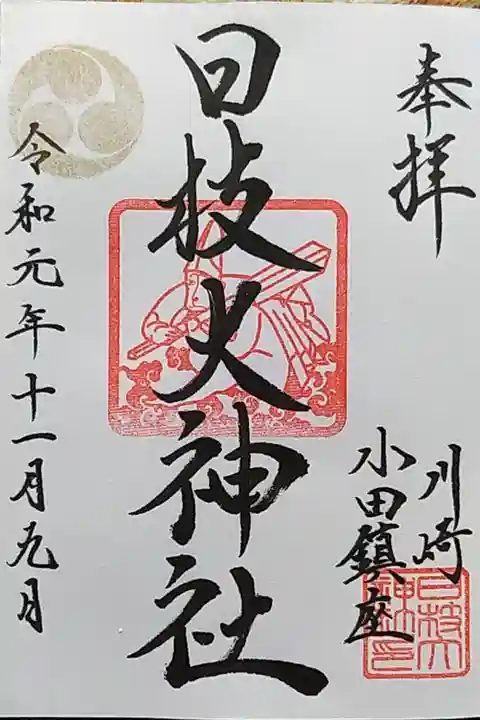 奉拝
川崎
小田鎮座
日枝大神社
令和元年十一月九月
日枝大神社印